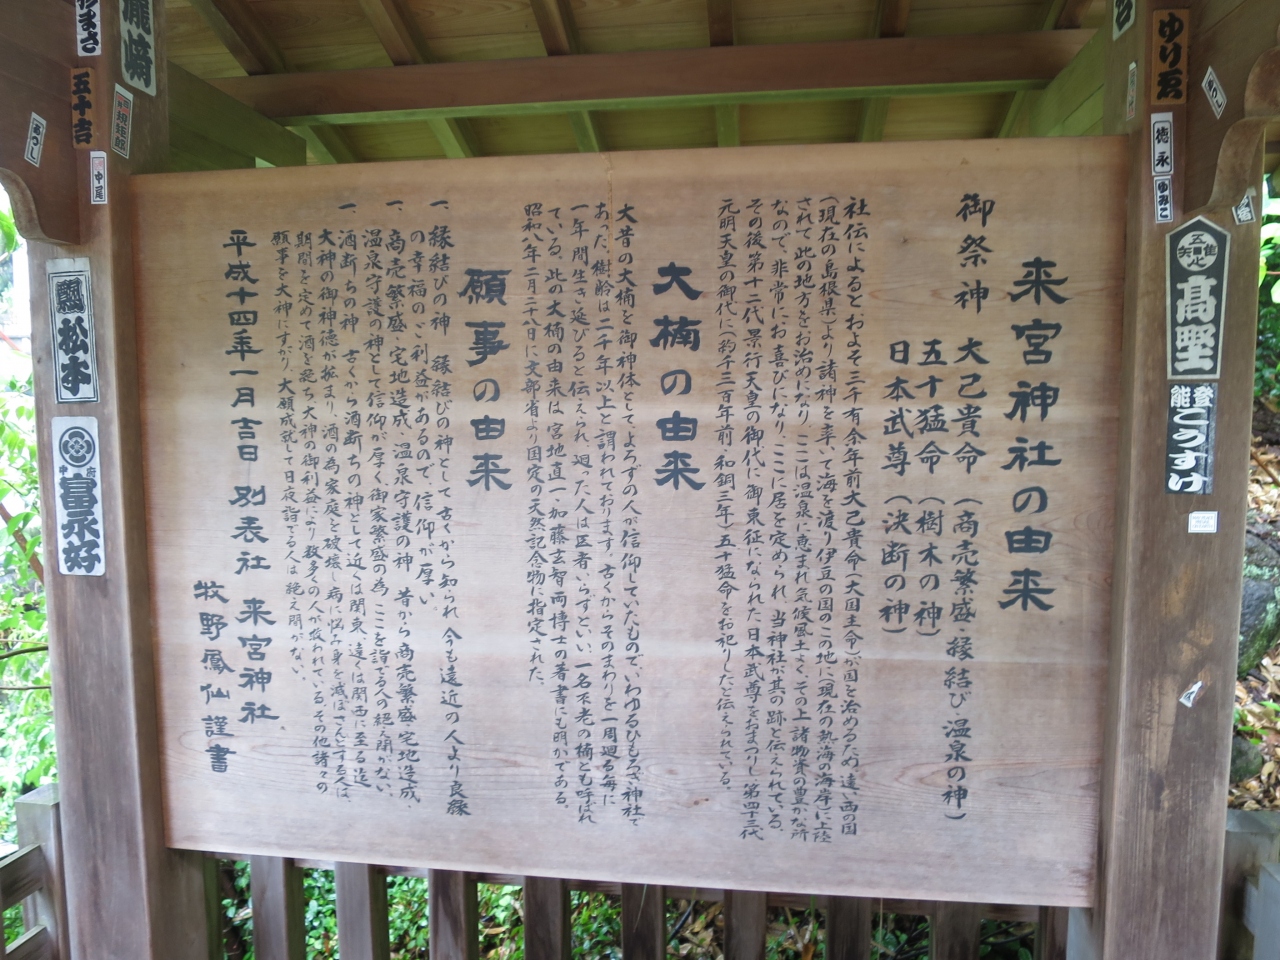 来宮神社の由来
御祭神 大己貴命(商売繁盛・縁結び・温泉の神)
五十猛命(樹木の神)
日本武尊(決断の神)
社伝によると、およそ三千有余年前大己貴命(大国主命)が国を治めるため、遠い西の国
(現在の島根県)より諸神を率いて海を渡り伊豆の国のこの地に(現在の熱海の海岸)に上陸
されて、此の地方をお治めになり、ここは温泉に恵まれ気候風土よく、その上諸物資の豊かな所
なので、非常にお喜びになり、ここに居を定められ、当神社が其の跡と伝えられている。
その後第十二代景行天皇の御代に、御東征になられた日本武尊をおまつりし、第四十三代
元明天皇の御代に(約千三百年前、和銅三年)五十猛命をお祀りしたと伝えられている。
大楠の由来
大昔の大楠を御神体として、よろずの人が信仰していたもので、いわゆるひもろぎ神社で
あった。樹齢は二千年以上と謂われております。古くからそのまわりを一周廻る毎に
一年間生き延びると伝えられ、廻った人は医者いらずといい、一名不老の楠とも呼ばれ
ている。此の大楠の由来は、宮地直一、加藤玄智両博士の著書にも明かである。
昭和八年二月二十八日に文部省より国定の天然記念物に指定された。
願事の由来
一、縁結びの神 縁結びの神として古くから知られ、今も遠近の人より良縁
の幸福のご利益があるので、信仰が厚い。
一、商売繁盛・宅地造成・温泉守護の神 昔から商売繁盛・宅地造成
温泉守護の神として信仰が厚く御家繁盛の為、ここを詣でる人の絶え間がない。
一、酒断ちの神 古くから酒断ちの神として近くは関東、遠くは関西に至る迄
大神の御神徳が拡まり、酒の為、家庭を破壊し病に悩み身を滅ぼさんとする人は、
期間を定めて酒を絶ち大神の御利益により数多くの人が救われている。その他諸々の
願事を大神にすがり、大願成就して日夜詣でる人は絶え間がない。
平成十四年一月吉日 別表社 来宮神社
牧野鳳仙謹書
瀧崎
まさ
五十吉
あつし
中尾
松本
中府
富永好
ゆり
徳永
ゆみこ
髙野
能登
こうすけ